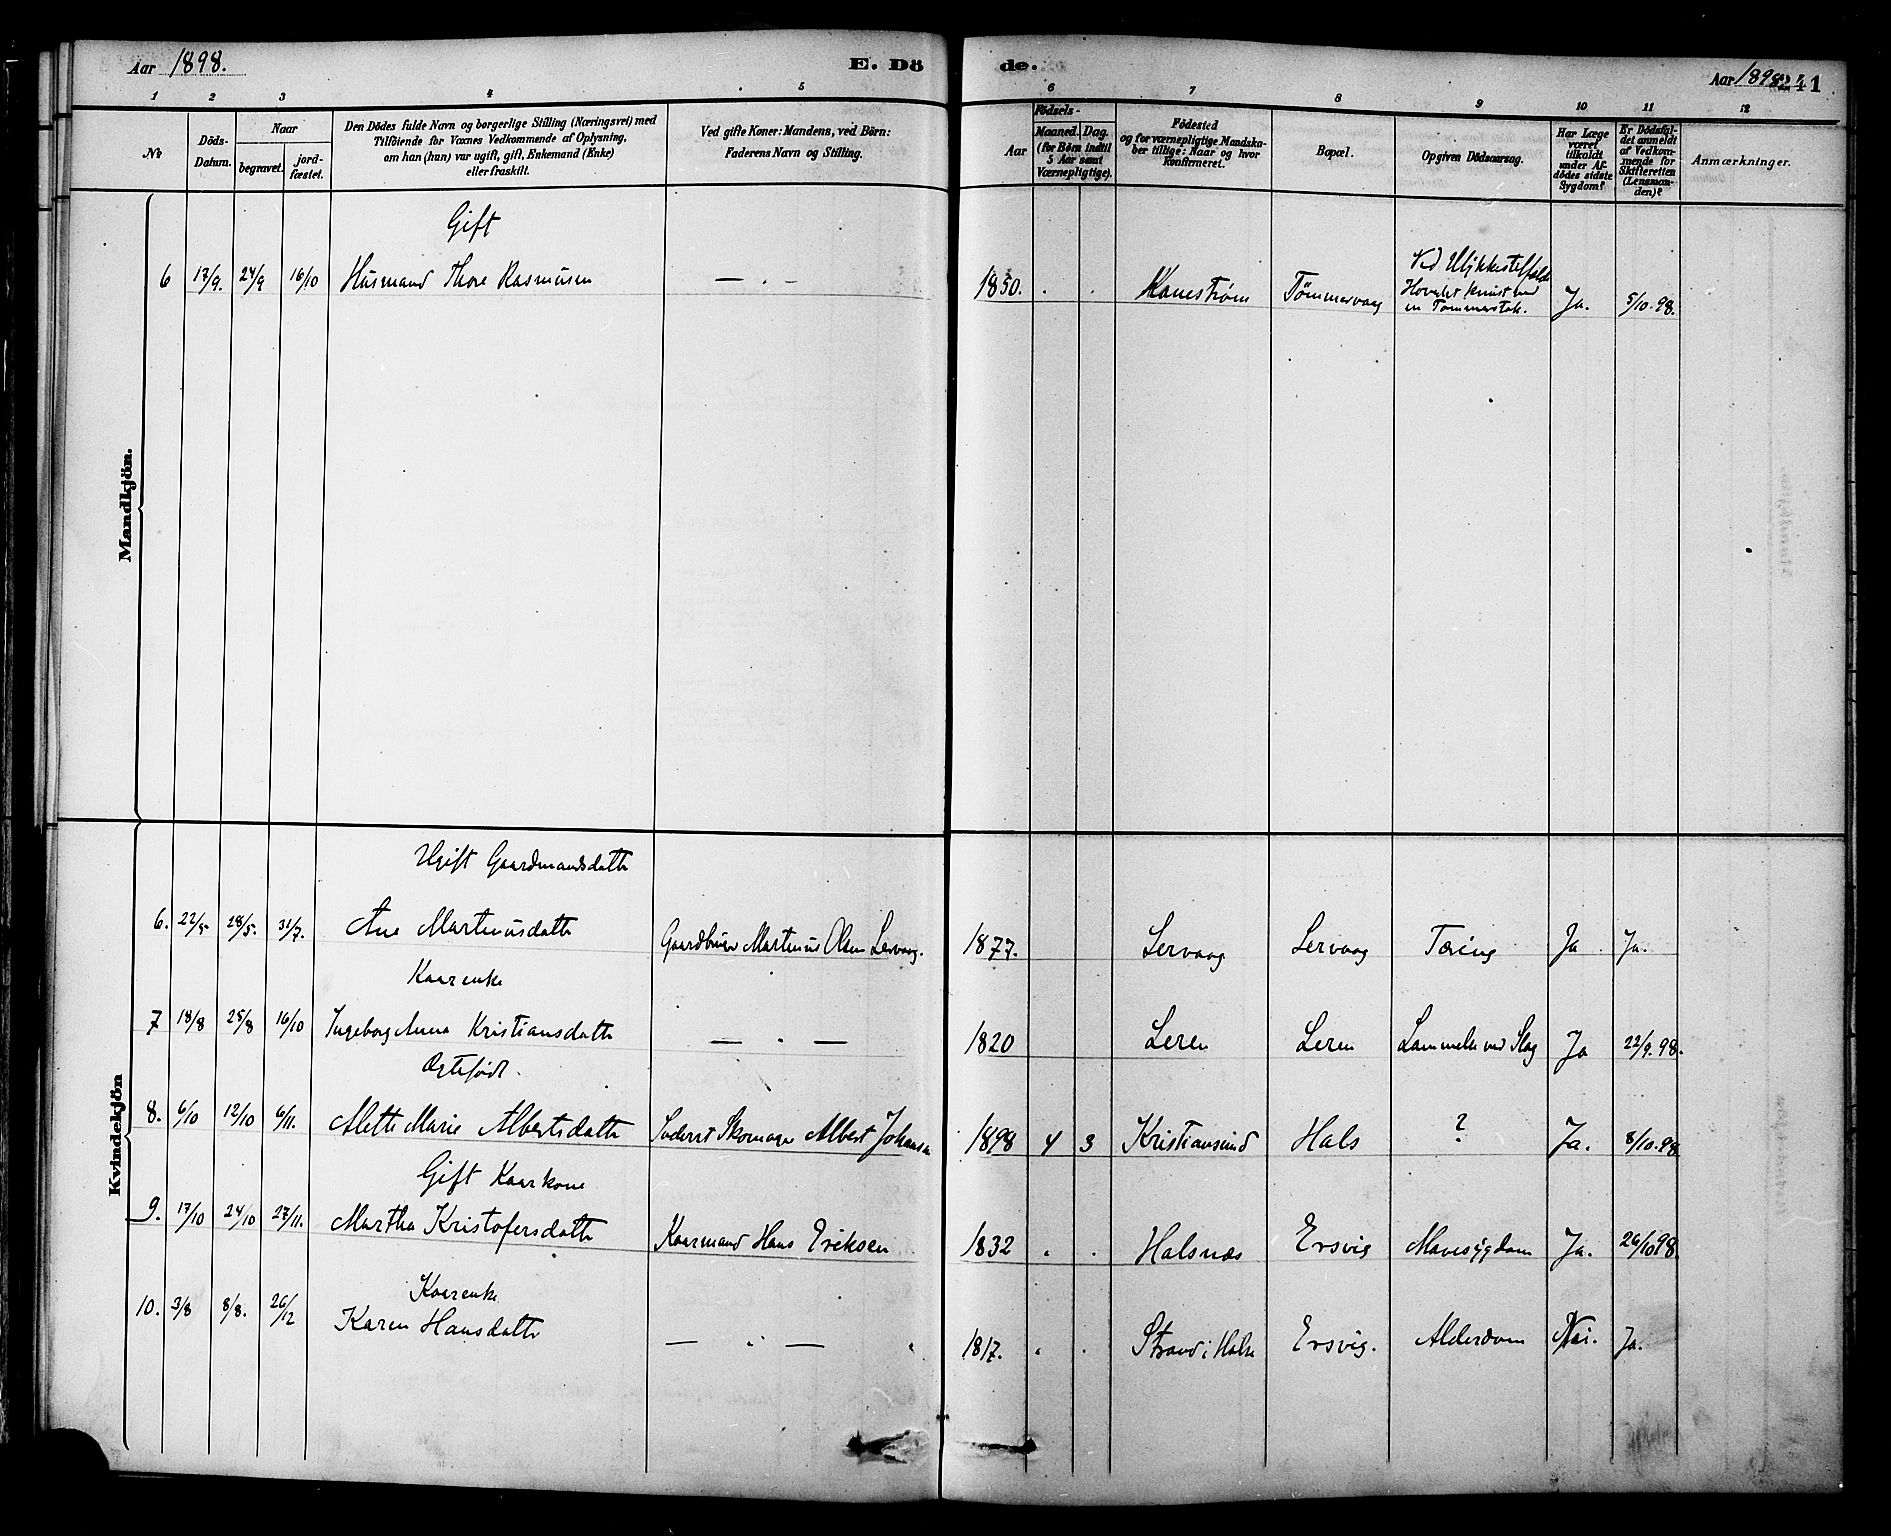 Aar 1898.
E. Dö
de.
Aar 1898.
241
1 2 3 4 5 6 7 8 9 10 11 12
Nr
Döds-Datum.
Naar
begravet.
jord-fæstet.
Den Dödes fulde Navn og borgerlige Stilling (Næringsvei) med
Tilföiende for Voxnes Vedkommende af Oplysning,
om han (hun) var ugift, gift, Enkemand (Enke)
eller fraskilt.
Ved gifte Koner: Mandens, ved Börn:
Faderens Navn og Stilling.
Födsels-
Aar
Maaned.
Dag.
(for Börn indtil
5 Aar samt
Værnepligtige).
Födested
og for værnepligtige Mandska-
ber tillige: Naar og hvor
Konfirmeret.
Bopæl.
Opgiven Dödsaarsag.
Har Læge
været
tilkaldt
under Af-
dödes sidste
Sygdom?
Er Dödsfal-
det anmeldt
af Vedkom-
mende for
Skifteretten
(Lensman-
den)?
Anmærkninger.
Mandkjön.
Gift
6 17/9. 24/9 16/10 Husmand Thore Rasmusen — . — 1850. . . Kanestrøm Tømmervaag Ved Ulykkestilfælde Hovedet knust ved en Tømmerstok. Ja. 5/10.98.
Kvindekjön
Ugift Gaardmandsdatte
6. 22/5 28/5. 31/7. Ane Martinusdatte Gaardbruger Martinus Olsen Lervaag. 1877. Lervaag Lervaag Tæring Ja Ja.
Kaarenke
7 18/8 25/8 16/10 Ingeborg Anna Kristiansdatte — . — 1820 Leren Leren Lammelse ved Slag Ja 22/9.98.
Ægtefødt.
8. 6/10 12/10 6/11. Alette Marie Albertsdatte Inderst Skomager Albert Johansen 1898 4 3 Kristiansund Hals ? Ja. 8/10.98
Gift Kaarkone
9. 17/10 24/10 27/11. Martha Kristofersdatte Kaarmand Hans Eriksen 1832 . . Halsnæs Ersvig Mavesygdom Ja. 26/10 98
Kaarenke
10. 3/8 8/8. 26/12 Karen Hansdatte — . — 1817. . . Strand i Halse Ersvig. Alderdom Nei. Ja.